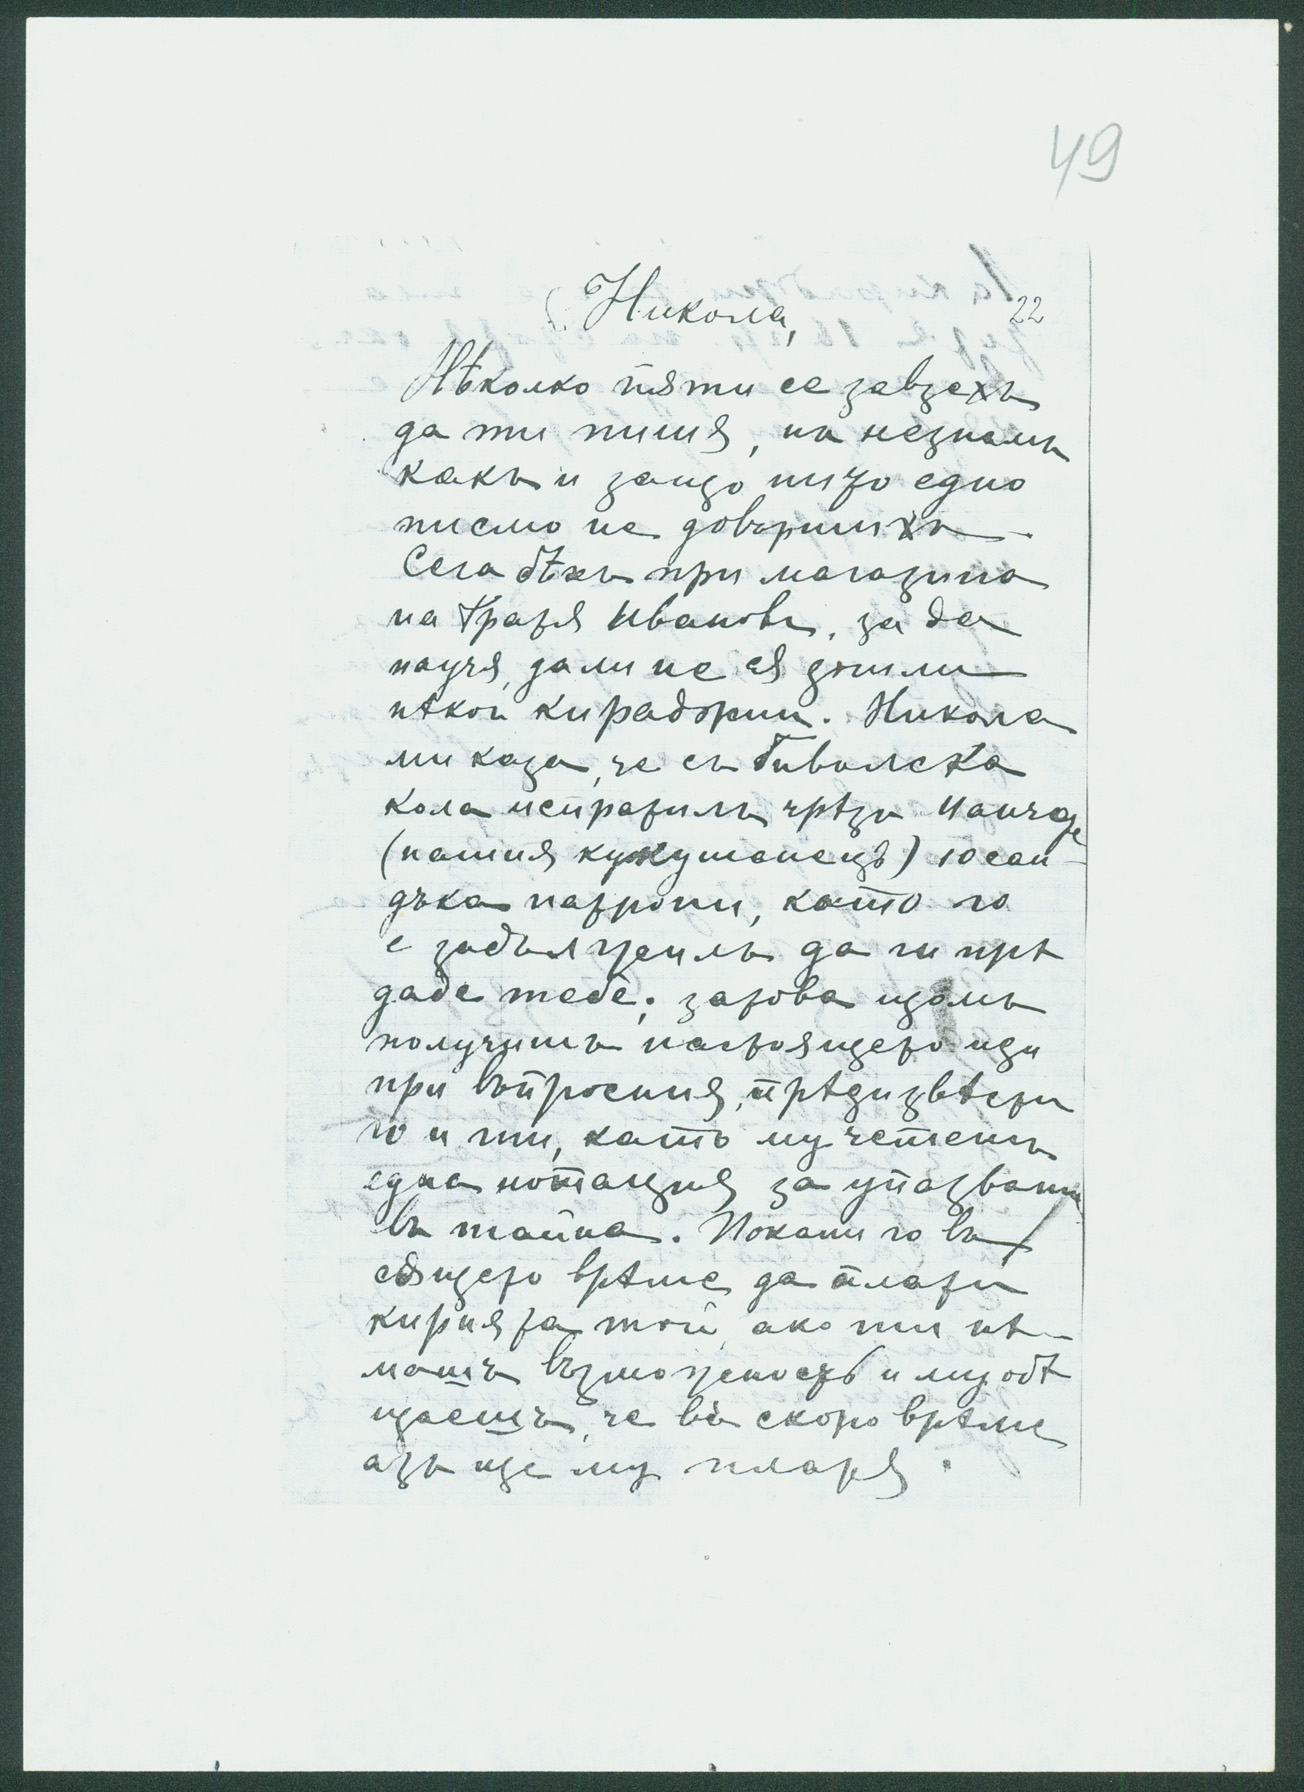 49
22
Никола,
Нѣколко пѫти се завзехъ
да ти пишѫ, но незнамъ
какъ и защо нито едно
писмо не довършихъ.
Сега бѣхъ при магазина
на Братя Иванови, за да
науча, дали не сѫ дошли
нѣкои кираджии. Никола
ми каза, че съ биволска
кола испратилъ чрѣзъ
(нашия кукушанецъ) 10 сан-
дъка патрони, като го
е задължилъ да ги прѣ
даде тебе; затова щомъ
получишъ настоящето иди
при въпросния, прѣдизвѣсти
го и ти, като му четешъ
една нотация за упазвание
въ тайна. Покани го въ
сѫщето врѣме да плати
кирията той, ако ти нѣ-
машъ възможность и му обѣ
щаешъ, че въ скоро врѣме
азъ ще му платѫ.